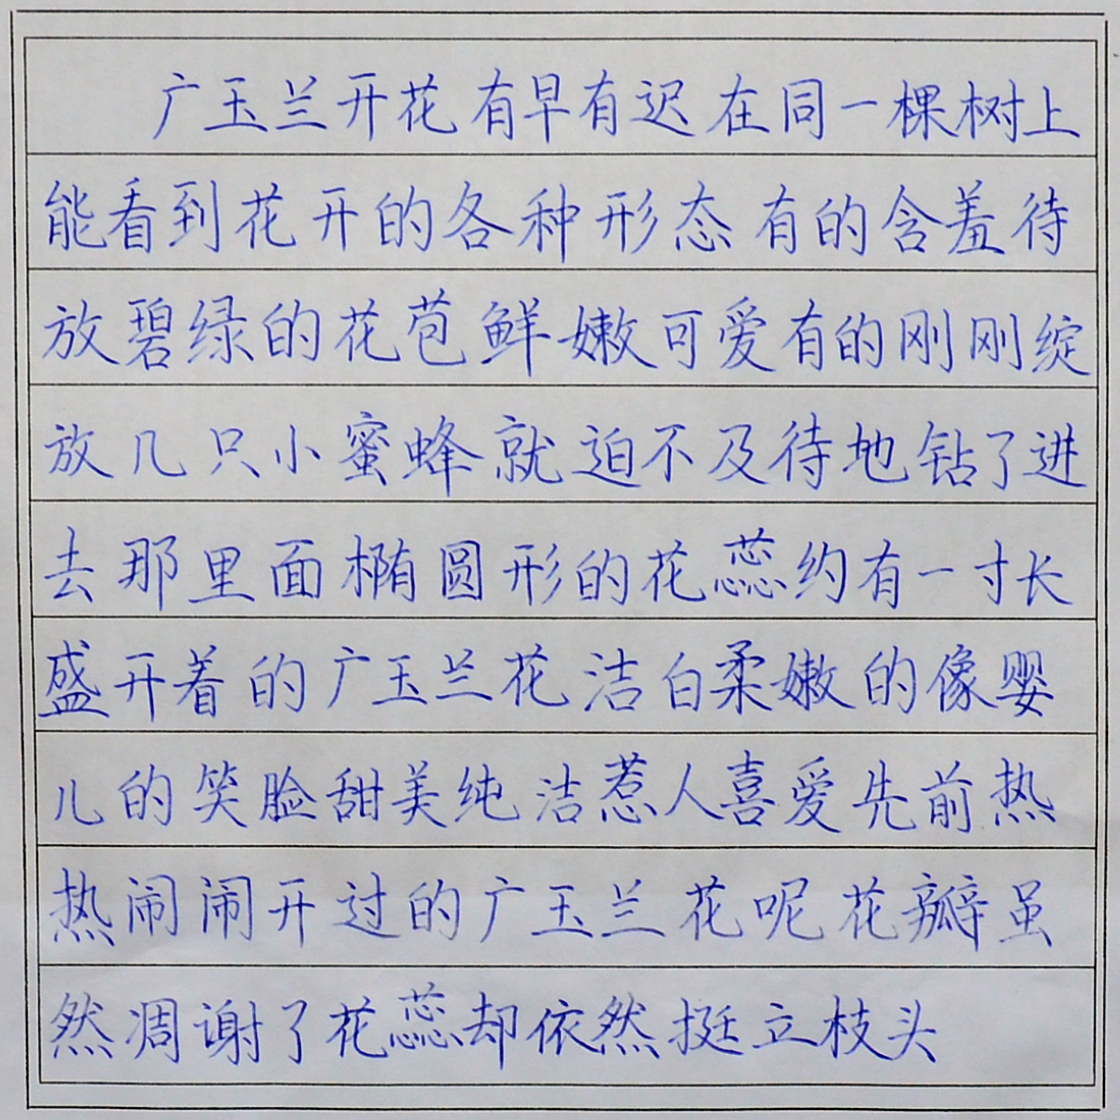 广玉兰开花有早有迟在同一棵树上
能看到花开的各种形态有的含羞待
放碧绿的花苞鲜嫩可爱有的刚刚绽
放几只小蜜蜂就迫不及待地钻了进
去那里面椭圆形的花蕊约有一寸长
盛开着的广玉兰花洁白柔嫩的像婴
儿的笑脸甜美纯洁惹人喜爱先前热
热闹闹开过的广玉兰花呢花瓣虽
然凋谢了花蕊却依然挺立枝头